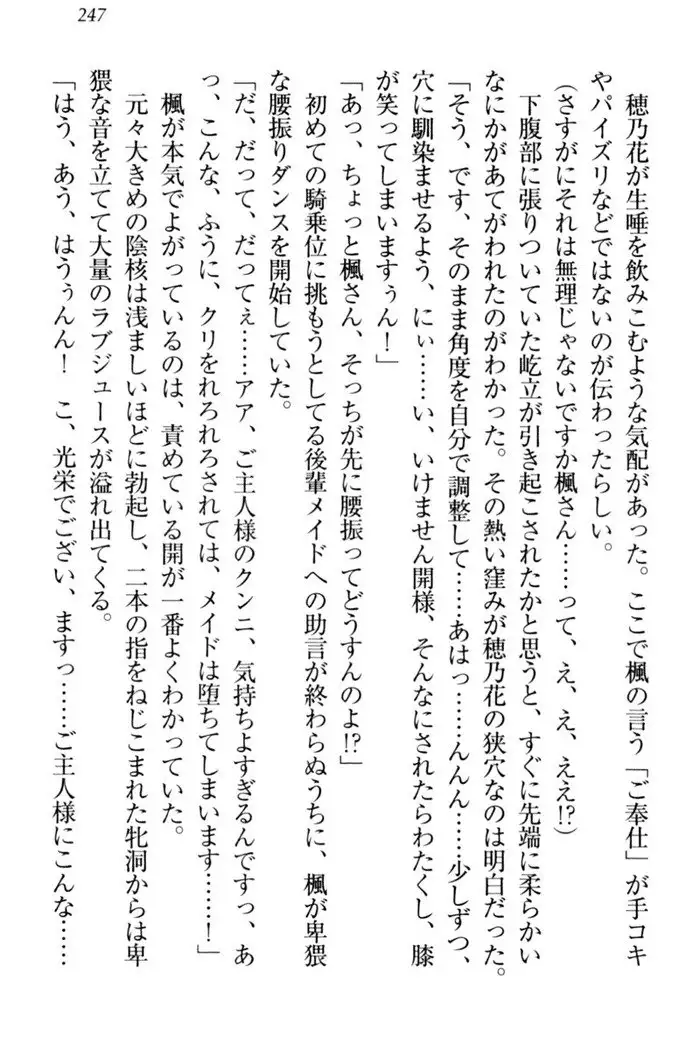 247
穂乃花が生唾を飲みこむような気配があった。ここで楓の言う「ご奉仕」が手コキ
やパイズリなどではないのが伝わったらしい。
(さすがにそれは無理じゃないですか楓さん……って、え、え、ええ!?)
下腹部に張りついていた屹立が引き起こされたかと思うと、すぐに先端に柔らかい
なにかがあてがわれたのがわかった。その熱い窪みが穂乃花の狭穴なのは明白だった。
「そう、です、そのまま角度を自分で調整して……あはっ……んんん……少しずつ、
穴に馴染ませるよう、にぃ……い、いけません開様、そんなにされたらわたくし、膝
が笑ってしまいますぅん!」
「あっ、ちょっと楓さん、そっちが先に腰振ってどうすんのよ!?」
初めての騎乗位に挑もうとしてる後輩メイドへの助言が終わらぬうちに、楓が卑猥
な腰振りダンスを開始していた。
「だ、だって、だってぇ……アア、ご主人様のクンニ、気持ちよすぎるんですっ、あ
っ、こんな、ふうに、クリをれろれろされては、メイドは堕ちてしまいます……!」
楓が本気でよがっているのは、責めている開が一番よくわかっていた。
元々大きめの陰核は浅ましいほどに勃起し、二本の指をねじこまれた牝洞からは卑
猥な音を立てて大量のラブジュースが溢れ出てくる。
「はう、あう、はうぅんん! こ、光栄でござい、ますっ……ご主人様にこんな……